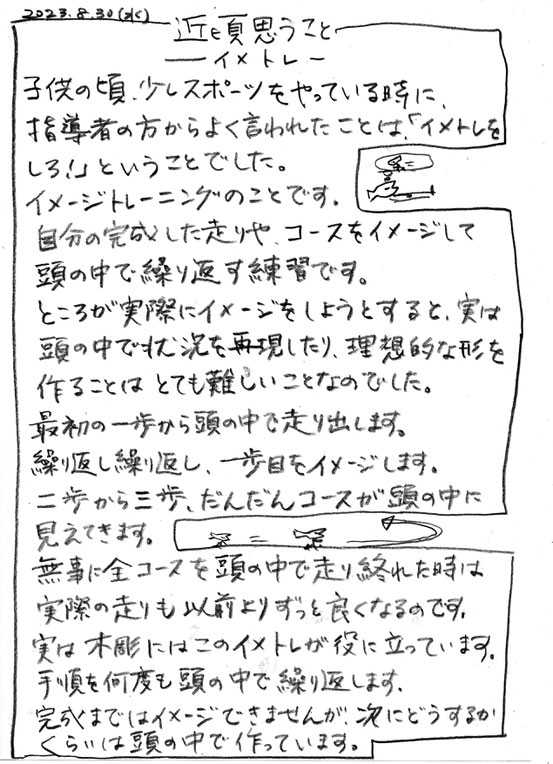 2023.8.30(水)
近頃思うこと
ーイメトレー
子供の頃、少しスポーツをやっている時に、
指導者の方からよく言われたことは、「イメトレを
しろ!」ということでした。
イメージトレーニングのことです。
自分の完成した走りや、コースをイメージして
頭の中で繰り返す練習です。
ところが実際にイメージをしようとすると、実は
頭の中で状況を再現したり、理想的な形を
作ることはとても難しいことなのでした。
最初の一歩から頭の中で走り出します。
繰り返し繰り返し、一歩目をイメージします。
二歩から三歩、だんだんコースが頭の中に
見えてきます。
無事に全コースを頭の中で走り終れた時は
実際の走りも以前よりずっと良くなるのです。
実は木彫にはこのイメトレが役に立っています。
手順を何度も頭の中で繰り返します。
完成まではイメージできませんが、次にどうするか
くらいは頭の中で作っています。